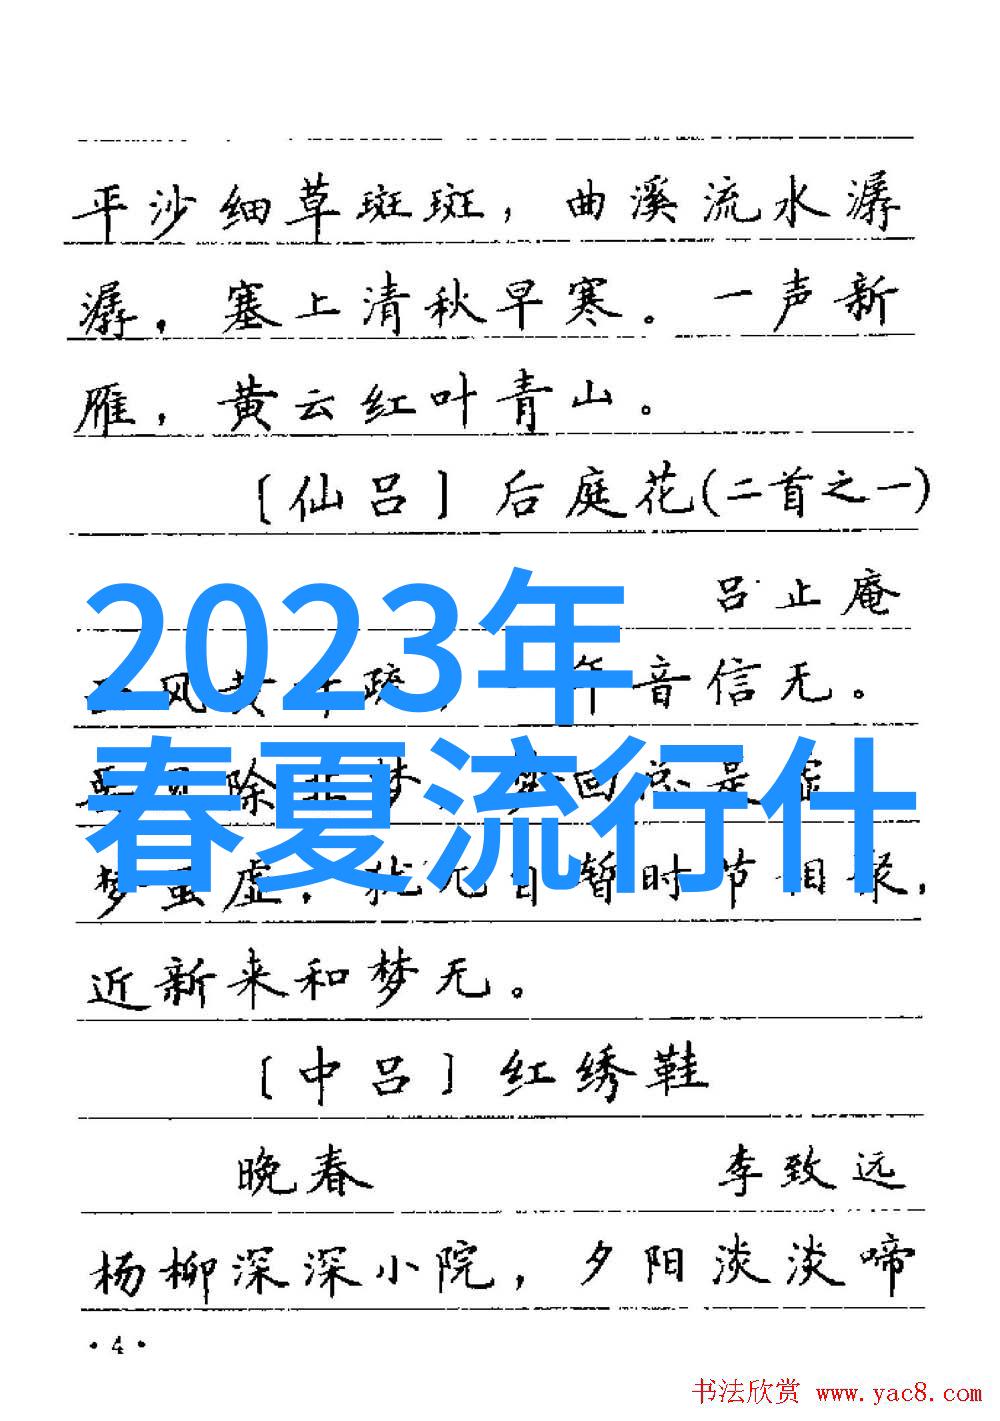 平沙细草斑斑，曲溪流水潺
潺，塞上清秋早寒。一声新
雁，黄云红叶青山。
〔仙吕〕后庭花(二首之一)
吕止庵
2023年
风 疏 年音信无。
春夏流行什
除 回 是
梦虽虚，犹兀自暂时节相聚，
近新来和梦无。
〔中吕〕红绣鞋
晚春 李致远
杨柳深深小院，夕阳淡淡啼
·4·
书法欣赏 www.yac8.com